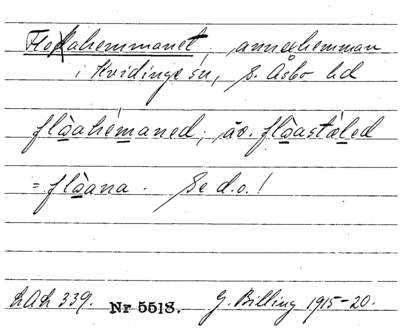 Floahemmanet, annexhemman
i Hvidinge sn, S. Åsbo hd
flòahémaned; äv. flòastàled
= flòana. Se d.o.!
LAL 339. Nr 5518. G. Billing 1915-20.